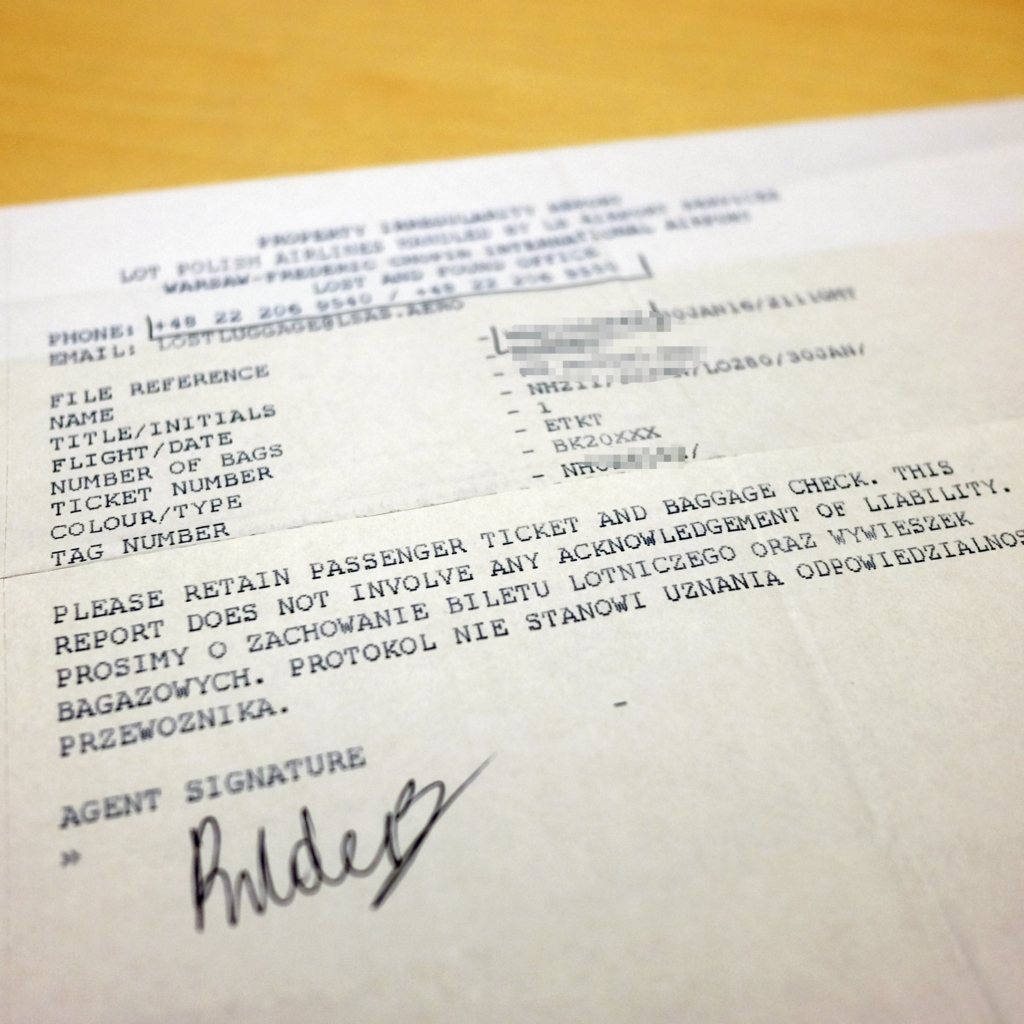 PROPERTY IRREGULARITY REPORT
LOT POLISH AIRLINES HANDLED BY LS AIRPORT SERVICES
WARSAW-FREDERIC CHOPIN INTERNATIONAL AIRPORT
LOST AND FOUND OFFICE
PHONE: +48 22 206 9540 / +48 22 206
EMAIL: LOSTLUGGAGE@LSAS.AERO
FILE REFERENCE - 30JAN16/2111GMT
NAME -
TITLE/INITIALS -
FLIGHT/DATE - NH211/ /LO280/30JAN/
NUMBER OF BAGS - 1
TICKET NUMBER - ETKT
COLOUR/TYPE - BK20XXX
TAG NUMBER - NH /
PLEASE RETAIN PASSENGER TICKET AND BAGGAGE CHECK. THIS
REPORT DOES NOT INVOLVE ANY ACKNOWLEDGEMENT OF LIABILITY.
PROSIMY O ZACHOWANIE BILETU LOTNICZEGO ORAZ WYWIESZEK
BAGAZOWYCH. PROTOKOL NIE STANOWI UZNANIA ODPOWIEDZIALNOS
PRZEWOZNIKA.
-
AGENT SIGNATURE
»